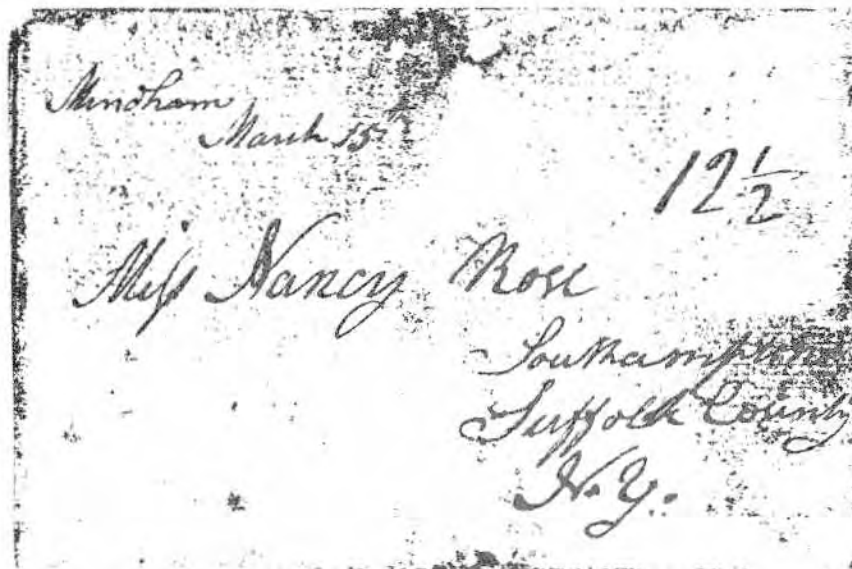 Mendham
March 15th
12 1/2
Miss Nancy Rose
Southampton
Suffolk County
N.Y.